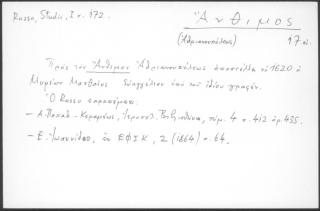 Russo, Studii, I σ. 172.
Ἄνθιμος
(Ἀδριανουπόλεως) 17 αἰ.
Πρὸς τὸν Ἄνθιμον Ἀδριανουπόλεως ἀποστέλλει τὸ 1620 ὁ
Μυρέων Ματθαῖος Εὐαγγέλιον ὑπὸ τοῦ ἰδίου γραφέν.
Ὁ Russo παραπέμπει:
– Α. Παπαδ.-Κεραμέως, Ἱεροσολ. Βιβλιοθήκη, τόμ. 4 σ. 412 ἀρ. 435.
– Ε. Ἰωαννίδου, ἐν ΕΦΙΚ, 2 (1864) σ. 64.